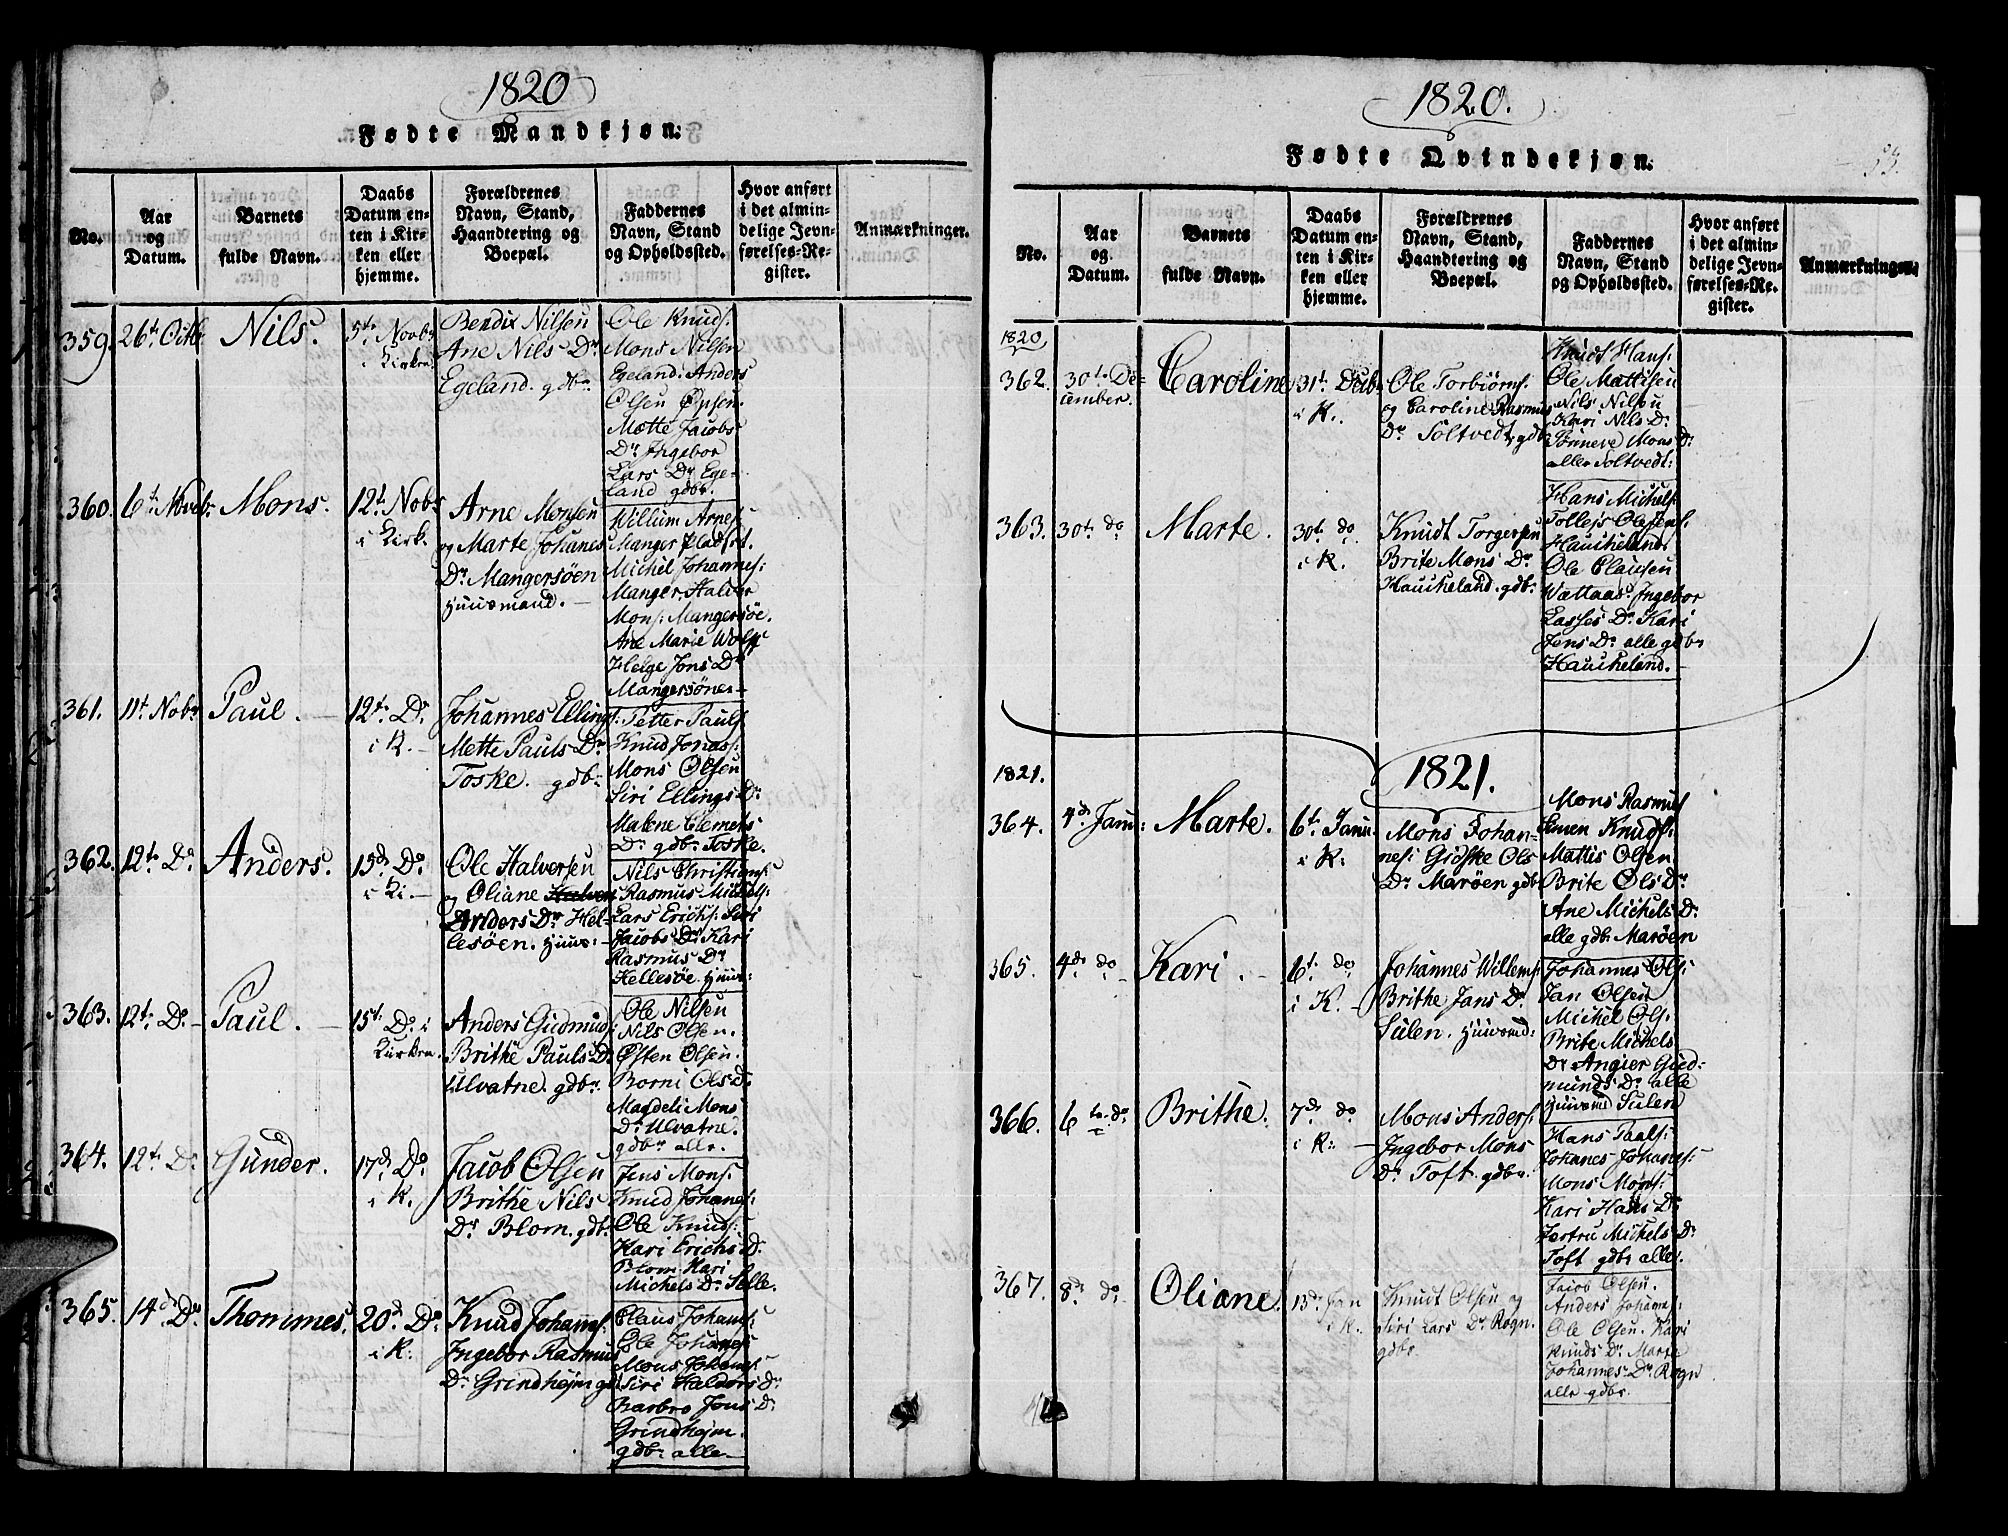 1820
Fødte Mandkjøn:
No.
Aar
og
Datum.
Barnets
fulde Navn.
Daabs
Datum en-
ten i Kir-
ken eller
hjemme.
Forældrenes
Navn, Stand,
Haandtering og
Boepæl.
Faddernes
Navn, Stand
og Opholdssted.
Hvor anført
i det almin-
delige Jevn-
førelses-Re-
gister.
Anmærkninger.
359.
26t Octbr
Nils.
5te Novbr
i Kirken.
Bendix Nilsen
Ane Nils Dr
Egeland. gdbr.
Ole Knuds:
Mons Nilsen
Egeland. Anders
Olsen
Mette Jacobs
Dr Ingebor
Lars Dr Ege-
land gdbr.
360.
6t Novbr.
Mons.
12t Nobr
i Kirk.
Arne Monsen
og Marte Johanes
Dr Mangersøen
Huusmand.
Willum Arnes:
Manger Pladsst.
Michel Johannes:
Manger Halvor
Mons: Mangersøe.
Ane Marie Wolff
Helge Jons Dr
Mangersøner
361.
11t Nobr
Paul.
12te Do
i K.
Johannes Ellings:
Mette Pauls Dr
Toske. gdbr.
Petter Pauls:
Knud Jonas:
Mons Olsen
Siri Ellings Dr
Malene Clemets
Dr gdbr Toske.
362.
12te Do
Anders.
15d Do
i Ki.
Ole Halversen
og Oliane Halvers
Anders Dr Hel-
lesøen. Huus:
Nils Christians:
Rasmus Michels:
Lars Erichs: Siri
Jacobs Dr Kari
Rasmus Dr
Hellesøe Huus:
363.
12te Do
Paul.
15t Do i
Kirken.
Anders Gudmunds:
Brithe Pauls Dr
Ulvatne. gdbr.
Ole Nilsen
Nils Olsen.
Østen Olsen.
Borni Ols Dr
Magdeli Mons
Dr Ulvatne.
gdbr alle.
364.
12t Do
Gunder.
17d Do
i K.
Jacob Olsen
Brithe Nils
Dr Blom. gdbr.
Jens Mons:
Knud Johanes:
Ole Knuds:
Kari Erichs Dr
Blom Kari
Michels Dr Sælle.
365.
14de Do
Thommes.
20d Do
i K:
Knud Johannes:
Ingebor Rasmus
Dr Grindhejm gd
Claus Johans:
Ole Johanes:
Mons Johans:
Siri Haldors Dr
Barbro Jons Dr
Grindhejm.
gdbr alle
1820.
Fødte Qvindekjøn:
53.
No.
Aar
og
Datum.
Barnets
fulde Navn.
Daabs
Datum en-
ten i Kir-
ken eller
hjemme.
Forældrenes
Navn, Stand,
Haandtering og
Boepæl.
Faddernes
Navn, Stand
og Opholdssted.
Hvor anført
i det almin-
delige Jevn-
førelses-Re-
gister.
Anmærkninger.
1820,
362.
30te De-
cember.
Caroline
31t Decbr
i K.
Ole Torbiørns:
og Caroline Rasmus
Dr Soltvedt, gdbr
Knudt Hans:
Ole Mattisen
Nils Nilsen
Kari Nils Dr
Sønneve Mons Dr
alle Soltvedt:
363.
30te do
Marte.
30t do
i K.
Knudt Torgersen
Brite Mons Dr
Haucheland. gdbr.
Hans Michels:
Tollejs Olesens:
Haucheland.
Ole Clausen
Wættaas. Ingebor
Lasses Dr Kari
Jens Dr alle gdbr
Haucheland.
1821.
1821.
364.
4d Janu:
Marte.
6t Janu.
i K:
Mons Johan-
nes: Gidske Ols
Dr Marøen gdbr
Mons Rasmus
Semen Knuds:
Mattis Olsen
Brite Ols Dr
Ane Michels Dr
alle gdbr Marøen
365.
4de do
Kari.
6t. do
i K.
Johannes Willems:
Brithe Jans Dr
Sulen. Huusmd:
Johannes Ols:
Jan Olsen
Michel Ols:
Brite Michels
Dr Angier Gud-
munds Dr alle
Huusmd Sulen
366.
6te do
Brithe.
7de do
i K:
Mons Anders:
Ingebor Mons
Dr Toft. gdbr.
Hans Paals:
Johanes Johanes:
Mons Mons:
Kari Hans Dr
Jertru Michels Dr
Toft gdbr alle.
367.
8de do
Oliane.
13de Jan
i K.
Knudt Olsen og
Siri Lars Dr Rogn.
gdbr.
Jacob Olsen.
Anders Johanes:
Ole Olsen. Kari
Knuds Dr Marte
Johannes Dr Rogn
alle gdbr.